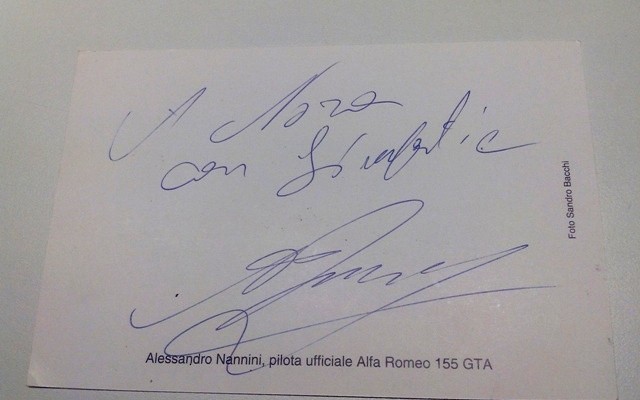 A Nora
con Simpatia
Foto Sandro Bacchi
Alessandro Nannini, pilota ufficiale Alfa Romeo 155 GTA